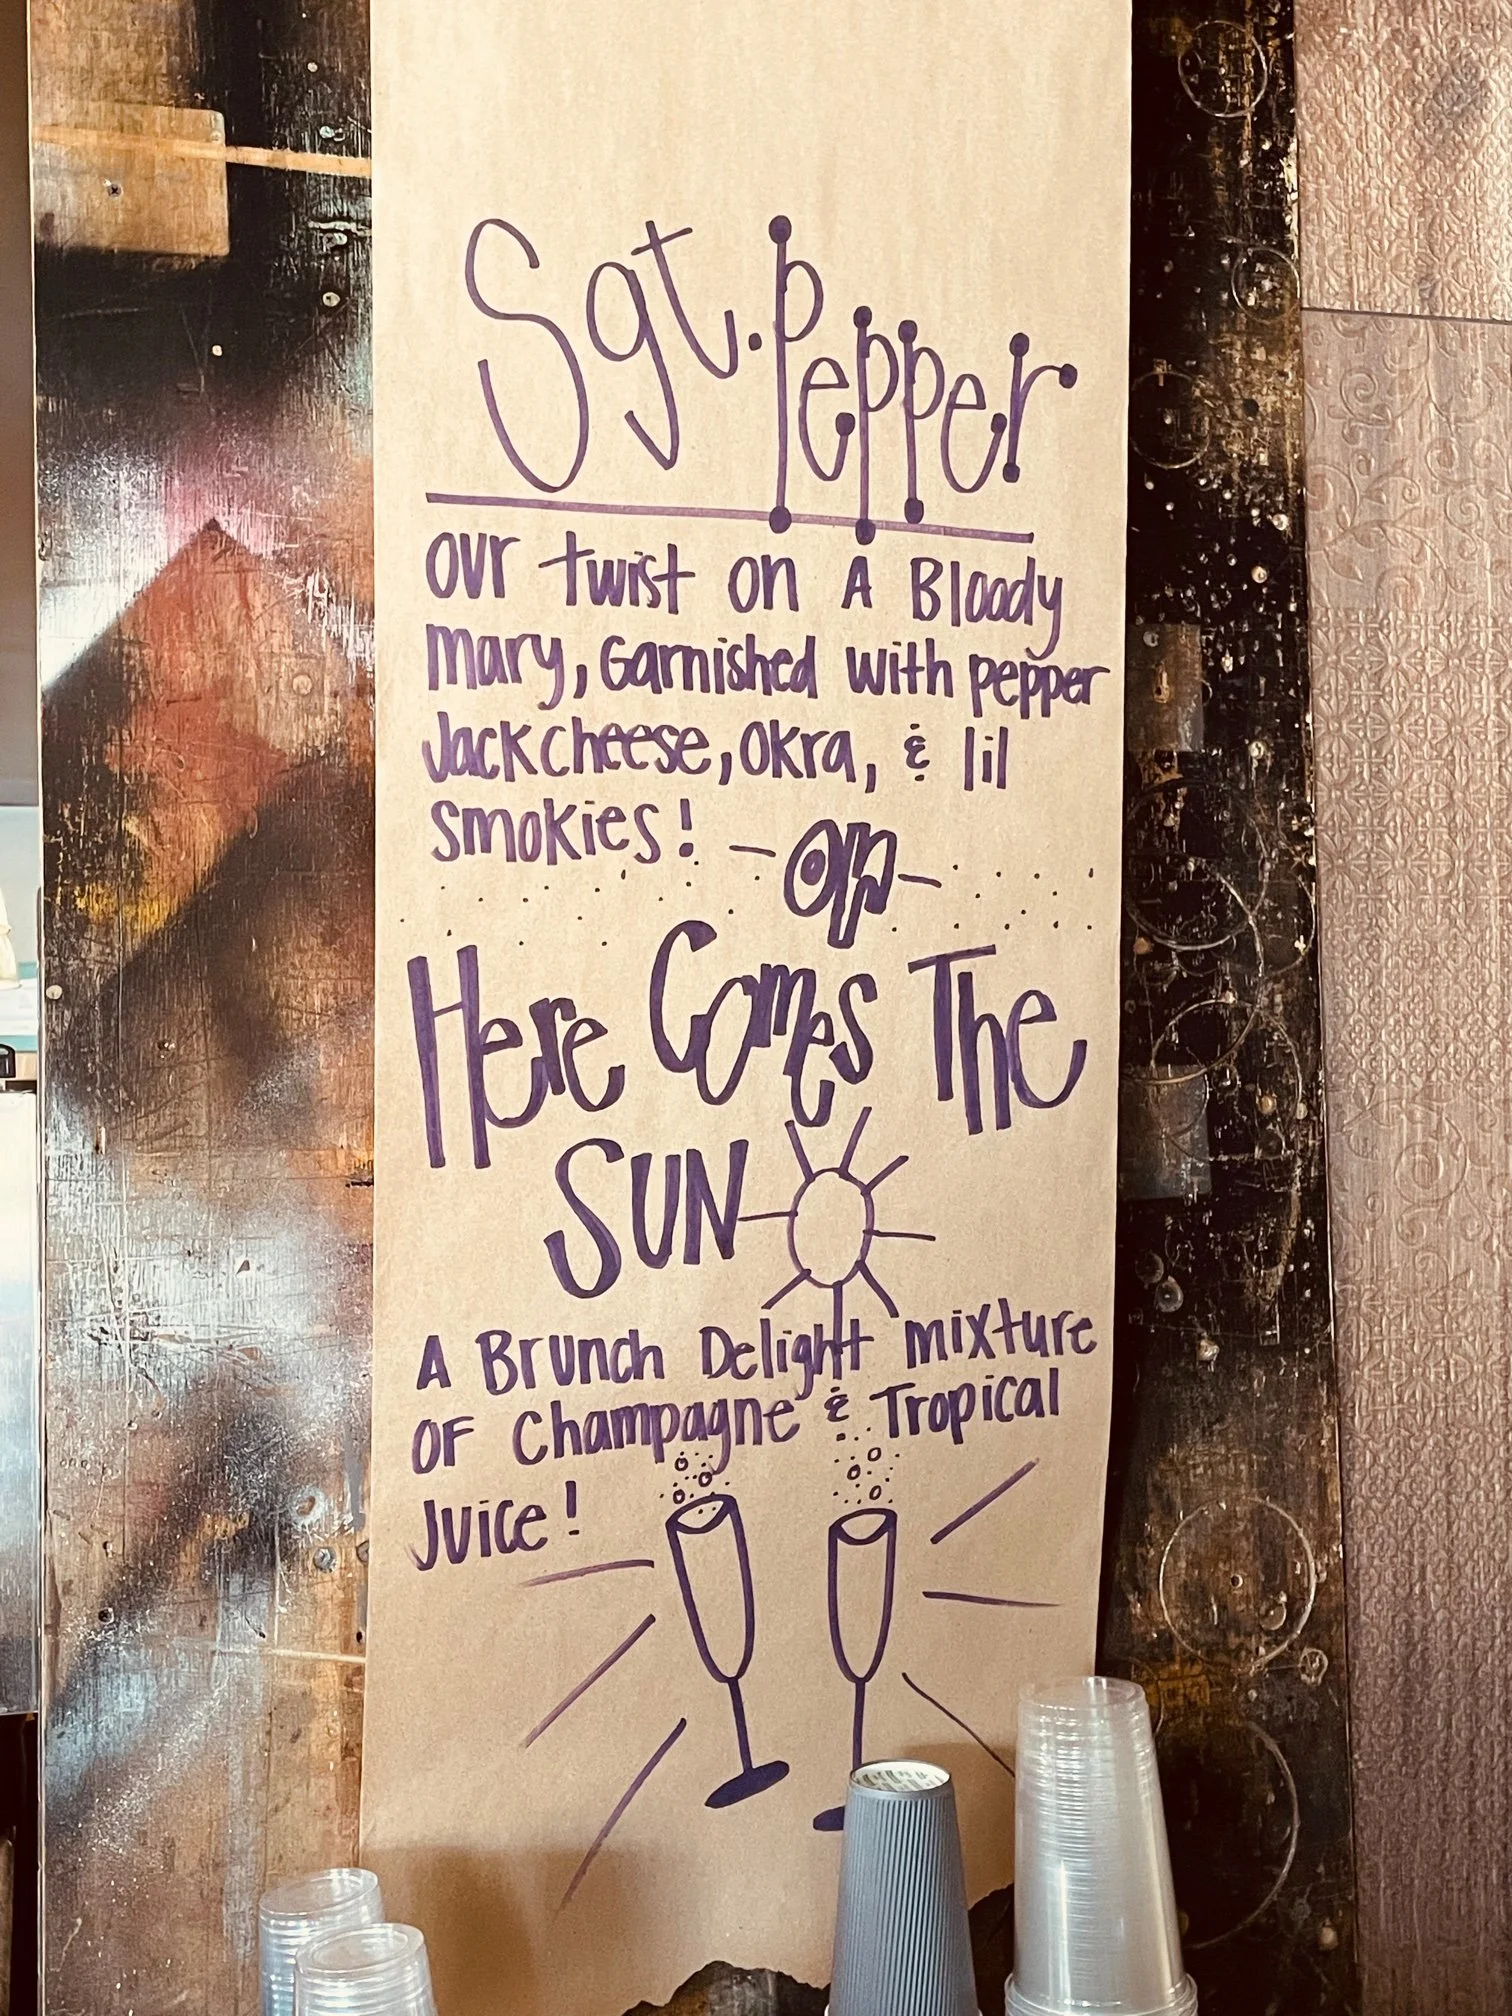 Sgt. Pepper
our twist on A Bloody
mary, Garnished with pepper
Jack cheese, Okra, & lil
smokies!
-OR-
Here Comes The
SUN
A Brunch Delight mixture
OF Champagne & Tropical
Juice!